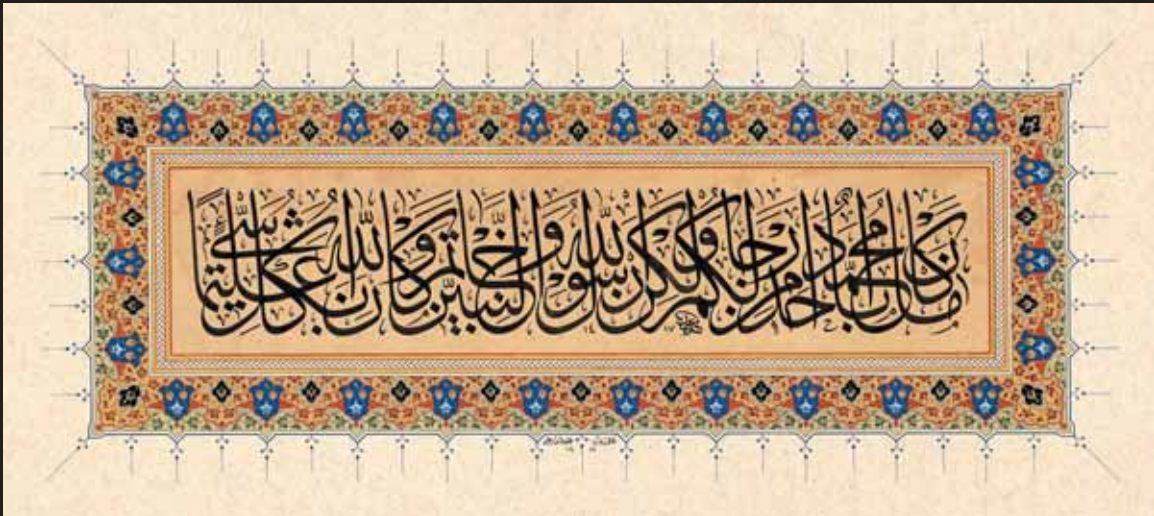 ما كان محمد أبا أحد من رجالكم ولكن رسول الله وخاتم النبيين وكان الله بكل شيء عليما